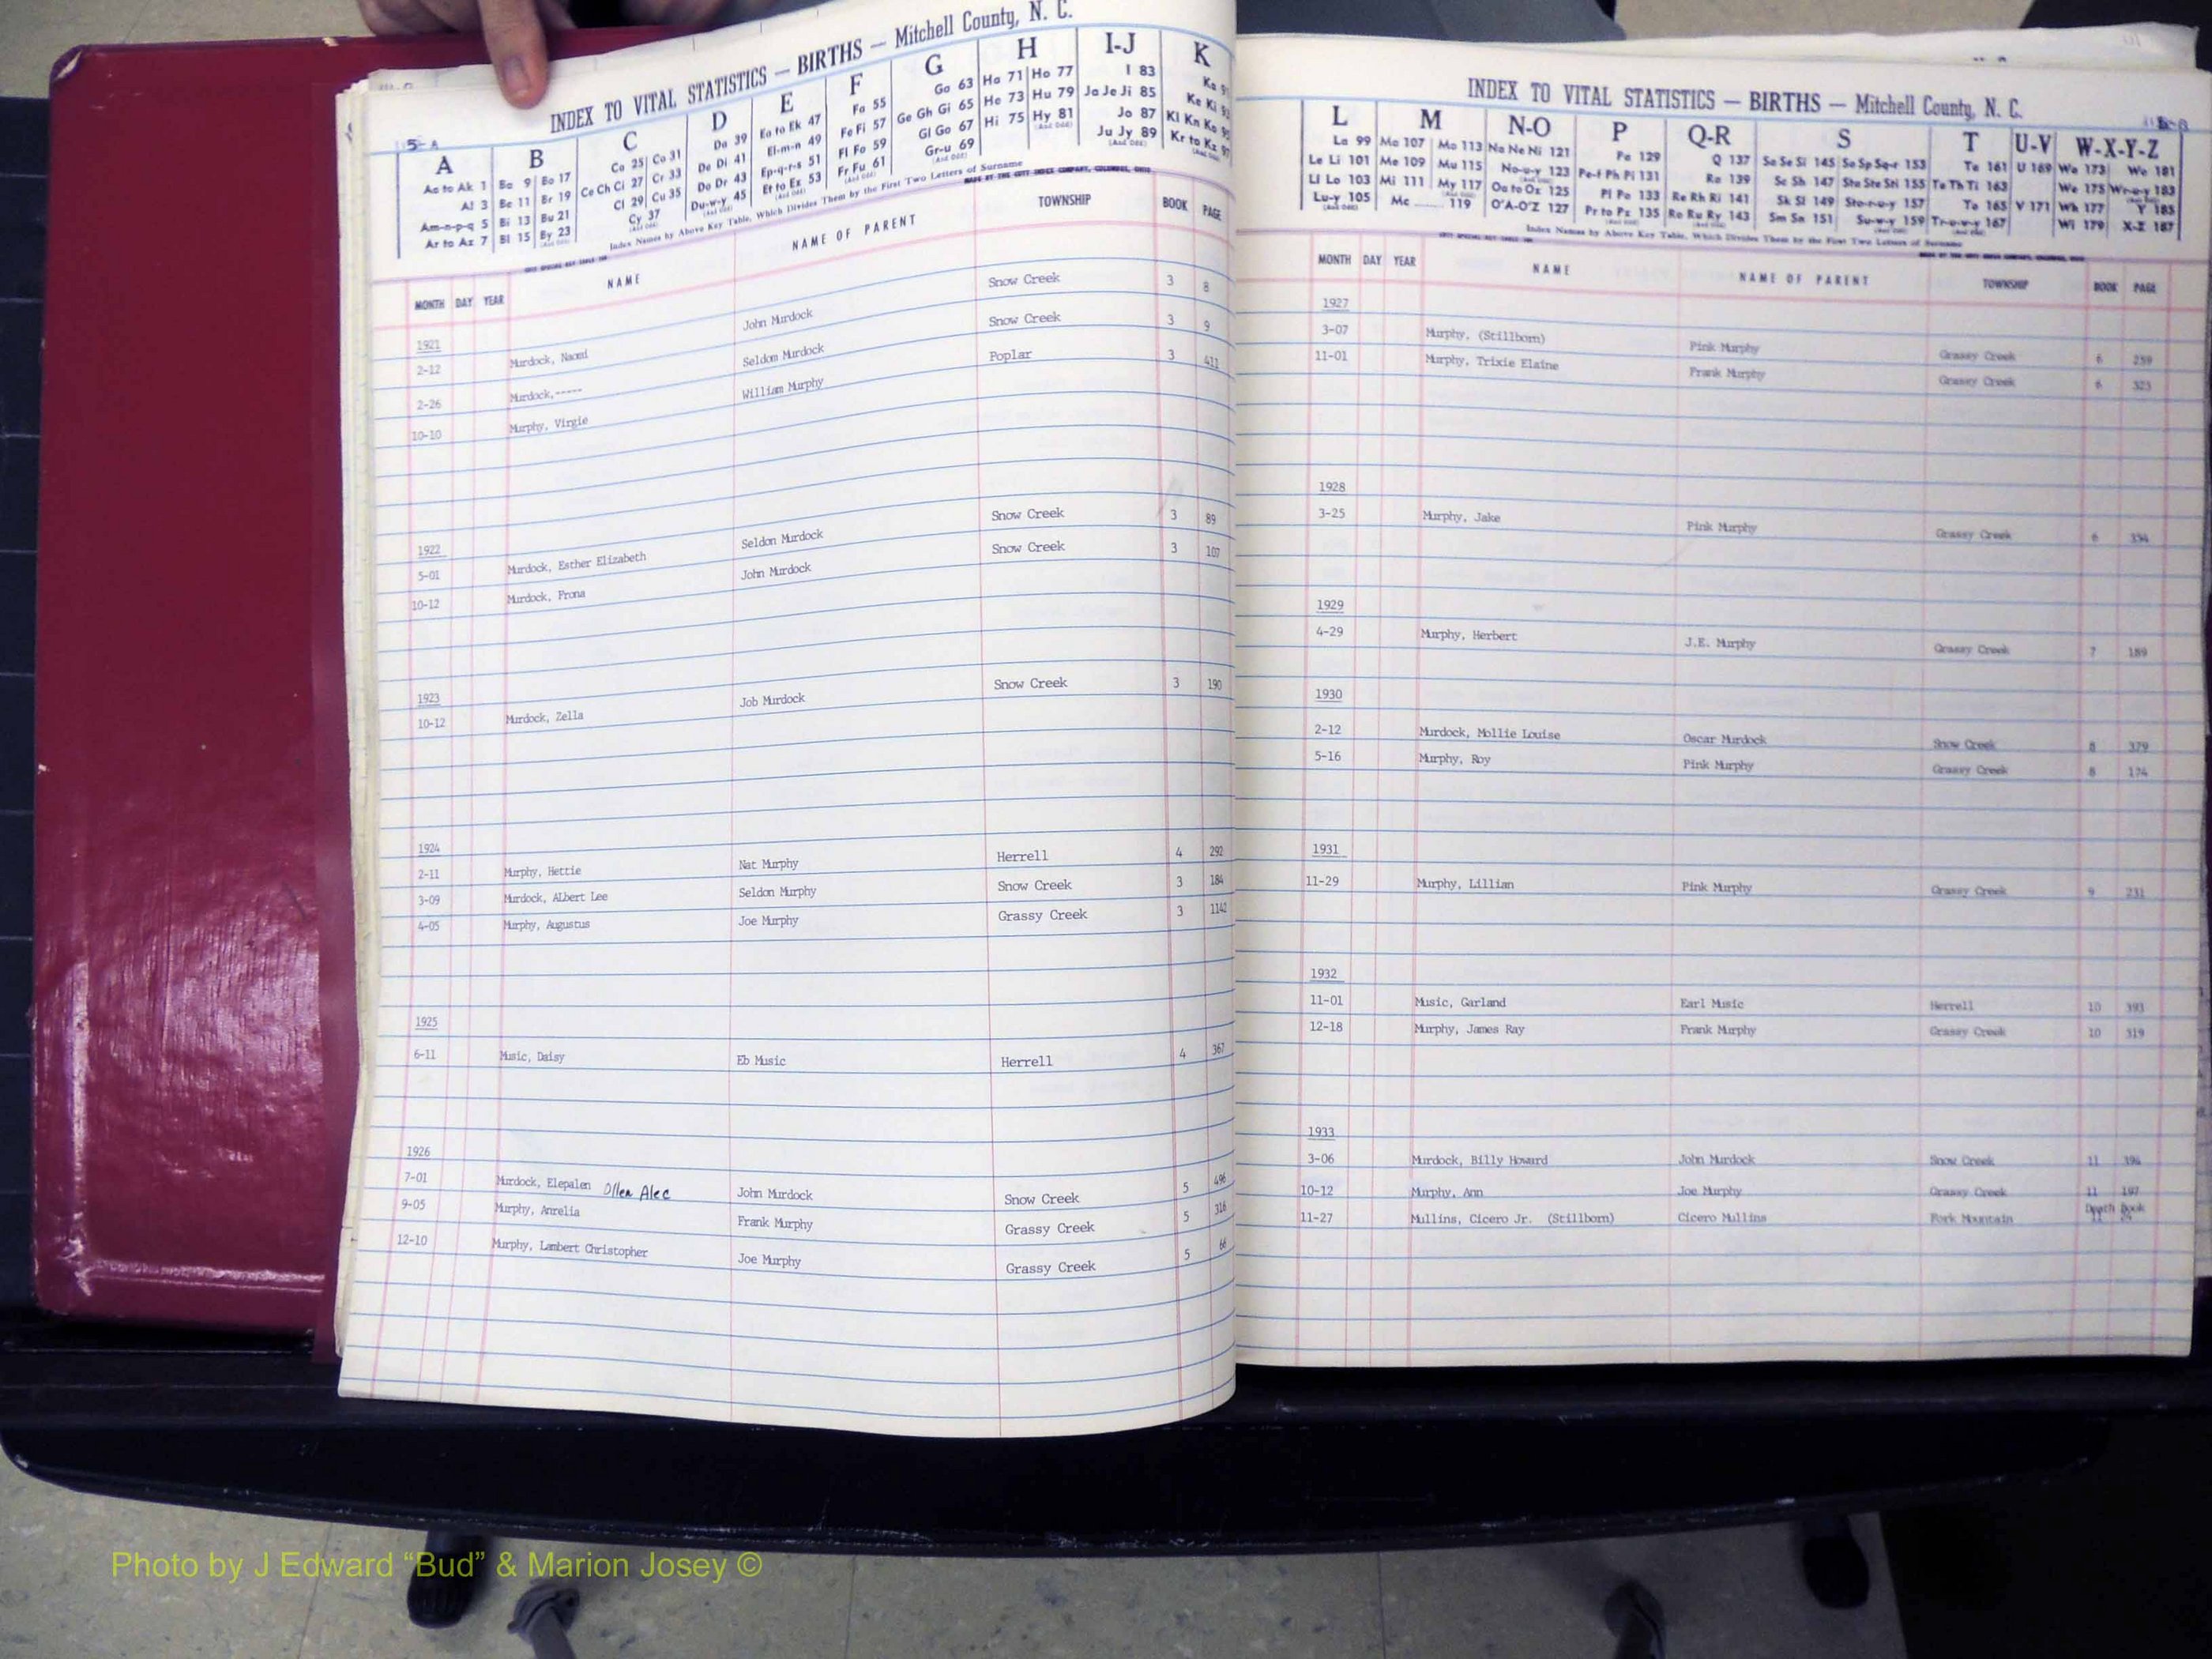 INDEX TO VITAL STATISTICS — BIRTHS — Mitchell County, N. C.
A B C D E F G H I-J K
Aa to Ak 1 Ba 9 Bo 17 Ca 25 Co 31 Da 39 Ea to Ek 47 Fa 55 Ga 63 Ha 71 Ho 77 I 83
Al 3 Be 11 Br 19 Ce Ch Ci 27 Cr 33 De Di 41 El-m-n 49 Fe Fi 57 Ge Gh Gi 65 He 73 Hu 79 Ja Je Ji 85 Ke Ki
Am-n-p-q 5 Bi 13 Bu 21 Cl 29 Cu 35 Do Dr 43 Ep-q-r-s 51 Fl Fo 59 Gl Go 67 Hi 75 Hy 81 Jo 87 Kl Kn Ko
Ar to Az 7 Bl 15 By 23 Cy 37 Du-w-y 45 Et to Ex 53 Fr Fu 61 Gr-u 69 Ju Jy 89 Kr to Kz
Index Names by Above Key Table, Which Divides Them by the First Two Letters of Surname
MONTH DAY YEAR NAME NAME OF PARENT TOWNSHIP BOOK PAGE
1921
2-12 Murdock, Naomi John Murdock Snow Creek 3 8
2-26 Murdock,----- Seldom Murdock Snow Creek 3 9
10-10 Murphy, Virgie William Murphy Poplar 3 411
1922
5-01 Murdock, Esther Elizabeth Seldon Murdock Snow Creek 3 89
10-12 Murdock, Prona John Murdock Snow Creek 3 107
1923
10-12 Murdock, Zella Job Murdock Snow Creek 3 190
1924
2-11 Murphy, Hettie Nat Murphy Herrell 4 292
3-09 Murdock, ALbert Lee Seldon Murphy Snow Creek 3 184
4-05 Murphy, Augustus Joe Murphy Grassy Creek 3 1142
1925
6-11 Music, Daisy Eb Music Herrell 4 367
1926
7-01 Murdock, Elepalen Ollen Alec John Murdock Snow Creek 5 496
9-05 Murphy, Anrelia Frank Murphy Grassy Creek 5 316
12-10 Murphy, Lambert Christopher Joe Murphy Grassy Creek 5 66
INDEX TO VITAL STATISTICS — BIRTHS — Mitchell County, N. C.
L M N-O P Q-R S T U-V W-X-Y-Z
La 99 Ma 107 Mo 113 Na Ne Ni 121 Pa 129 Q 137 Sa Se Si 145 So Sp Sq-r 153 Ta 161 U 169 Wa 173 Wo 181
Le Li 101 Me 109 Mu 115 No-u-y 123 Pe-f Ph Pi 131 Ra 139 Sc Sh 147 Sta Ste Sti 155 Te Th Ti 163 We 175 Wr-u-y 183
Ll Lo 103 Mi 111 My 117 Oa to Oz 125 Pl Po 133 Re Rh Ri 141 Sk Sl 149 Sto-r-u-y 157 To 165 V 171 Wh 177 Y 185
Lu-y 105 Mc 119 O'A-O'Z 127 Pr to Pz 135 Ro Ru Ry 143 Sm Sn 151 Su-w-y 159 Tr-u-w-y 167 Wi 179 X-Z 187
Index Names by Above Key Table, Which Divides Them by the First Two Letters of Surname
MONTH DAY YEAR NAME NAME OF PARENT TOWNSHIP BOOK PAGE
1927
3-07 Murphy, (Stillborn) Pink Murphy Grassy Creek 6 259
11-01 Murphy, Trixie Elaine Frank Murphy Grassy Creek 6 323
1928
3-25 Murphy, Jake Pink Murphy Grassy Creek 6 354
1929
4-29 Murphy, Herbert J.E. Murphy Grassy Creek 7 189
1930
2-12 Murdock, Mollie Louise Oscar Murdock Snow Creek 8 379
5-16 Murphy, Roy Pink Murphy Grassy Creek 8 174
1931
11-29 Murphy, Lillian Pink Murphy Grassy Creek 9 231
1932
11-01 Music, Garland Earl Music Herrell 10 393
12-18 Murphy, James Ray Frank Murphy Grassy Creek 10 319
1933
3-06 Murdock, Billy Howard John Murdock Snow Creek 11
10-12 Murphy, Ann Joe Murphy Grassy Creek 11 197
11-27 Mullins, Cicero Jr. (Stillborn) Cicero Mullins Fork Mountain Death Book 11
Photo by J Edward “Bud” & Marion Josey ©